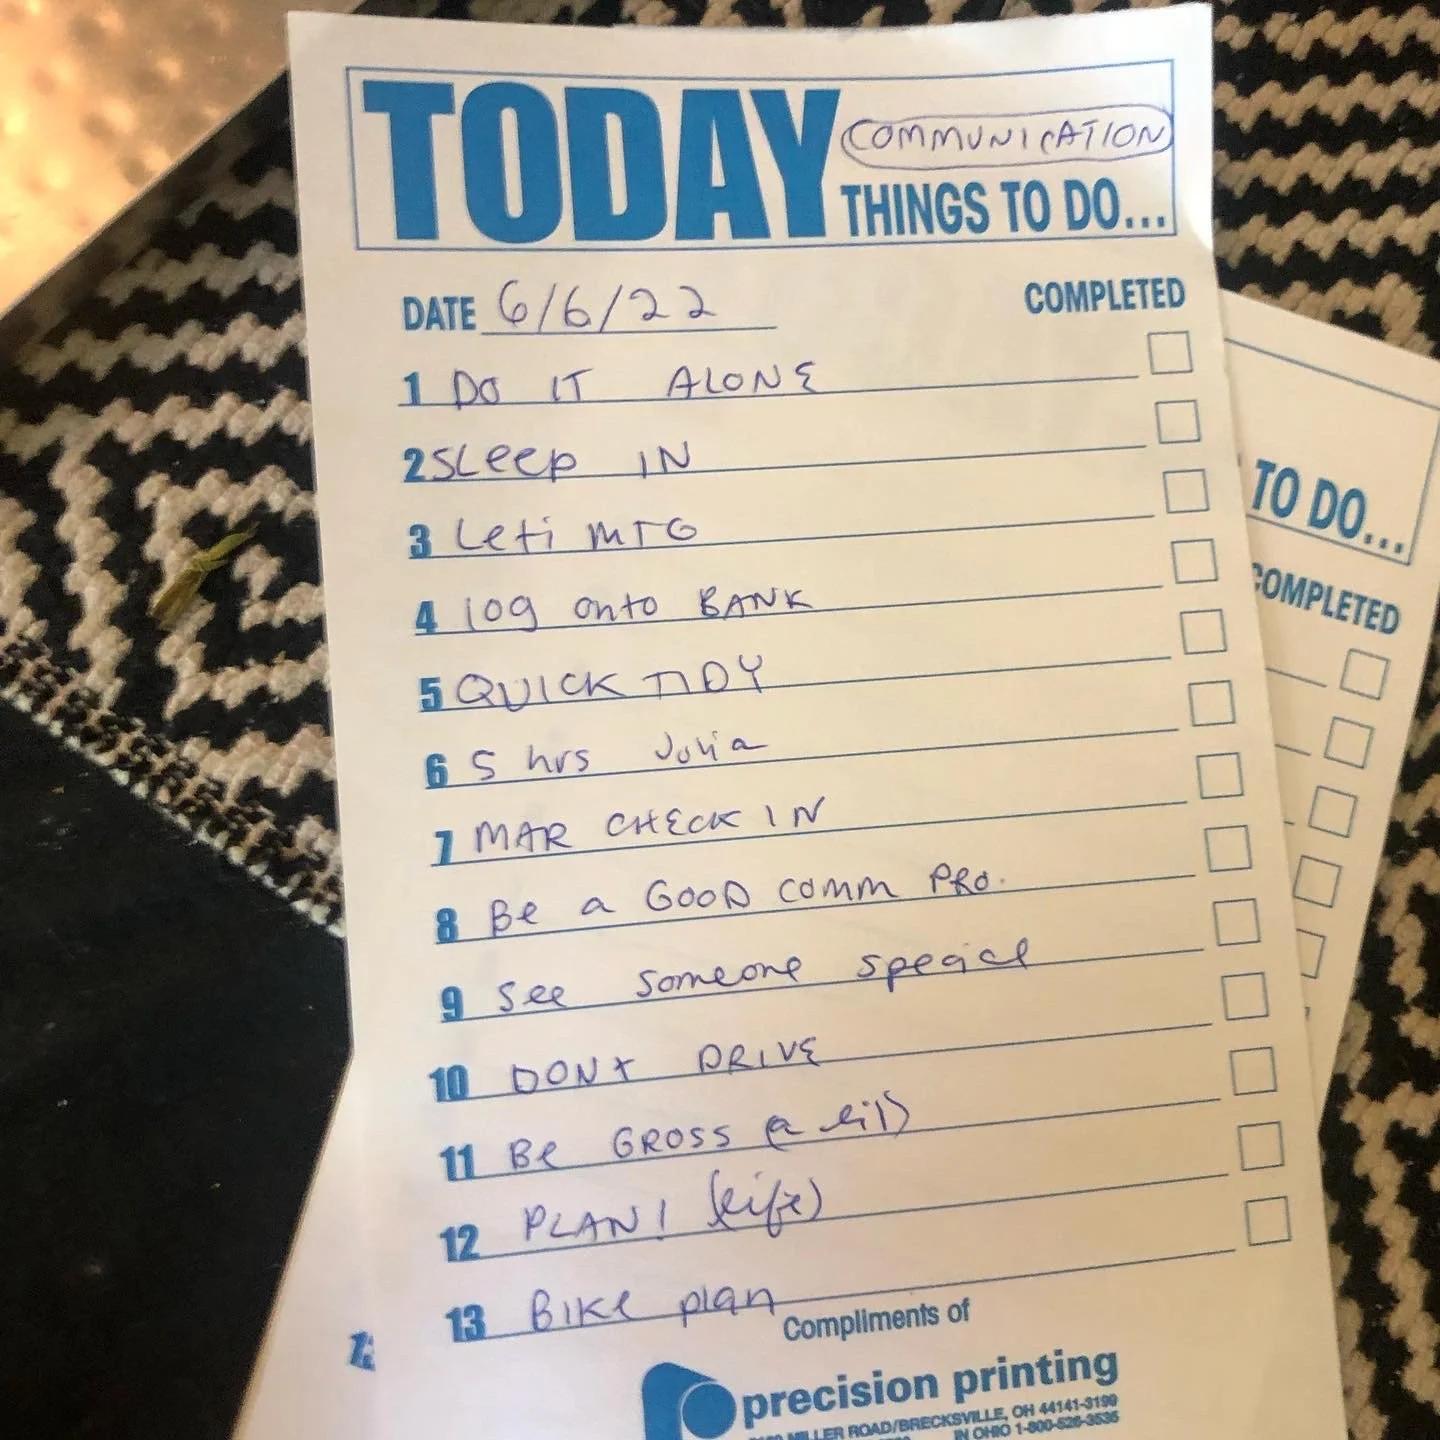 COMMUNICATION
TODAY THINGS TO DO...
DATE 6/6/22 COMPLETED
1 DO IT ALONE
2 SLeep IN
3 Leti MTG
4 log onto BANK
5 QUICK TIDY
6 5 hrs Julia
7 MAR CHECK IN
8 Be a GOOD COMM PRO.
9 See Someone special
10 DONT DRIVE
11 Be GROSS (a lil)
12 PLAN! (life)
13 BIKE plan
Compliments of
precision printing
MILLER ROAD/BRECKSVILLE, OH 44141-3199
IN OHIO 1-800-526-3535
TO DO...
COMPLETED